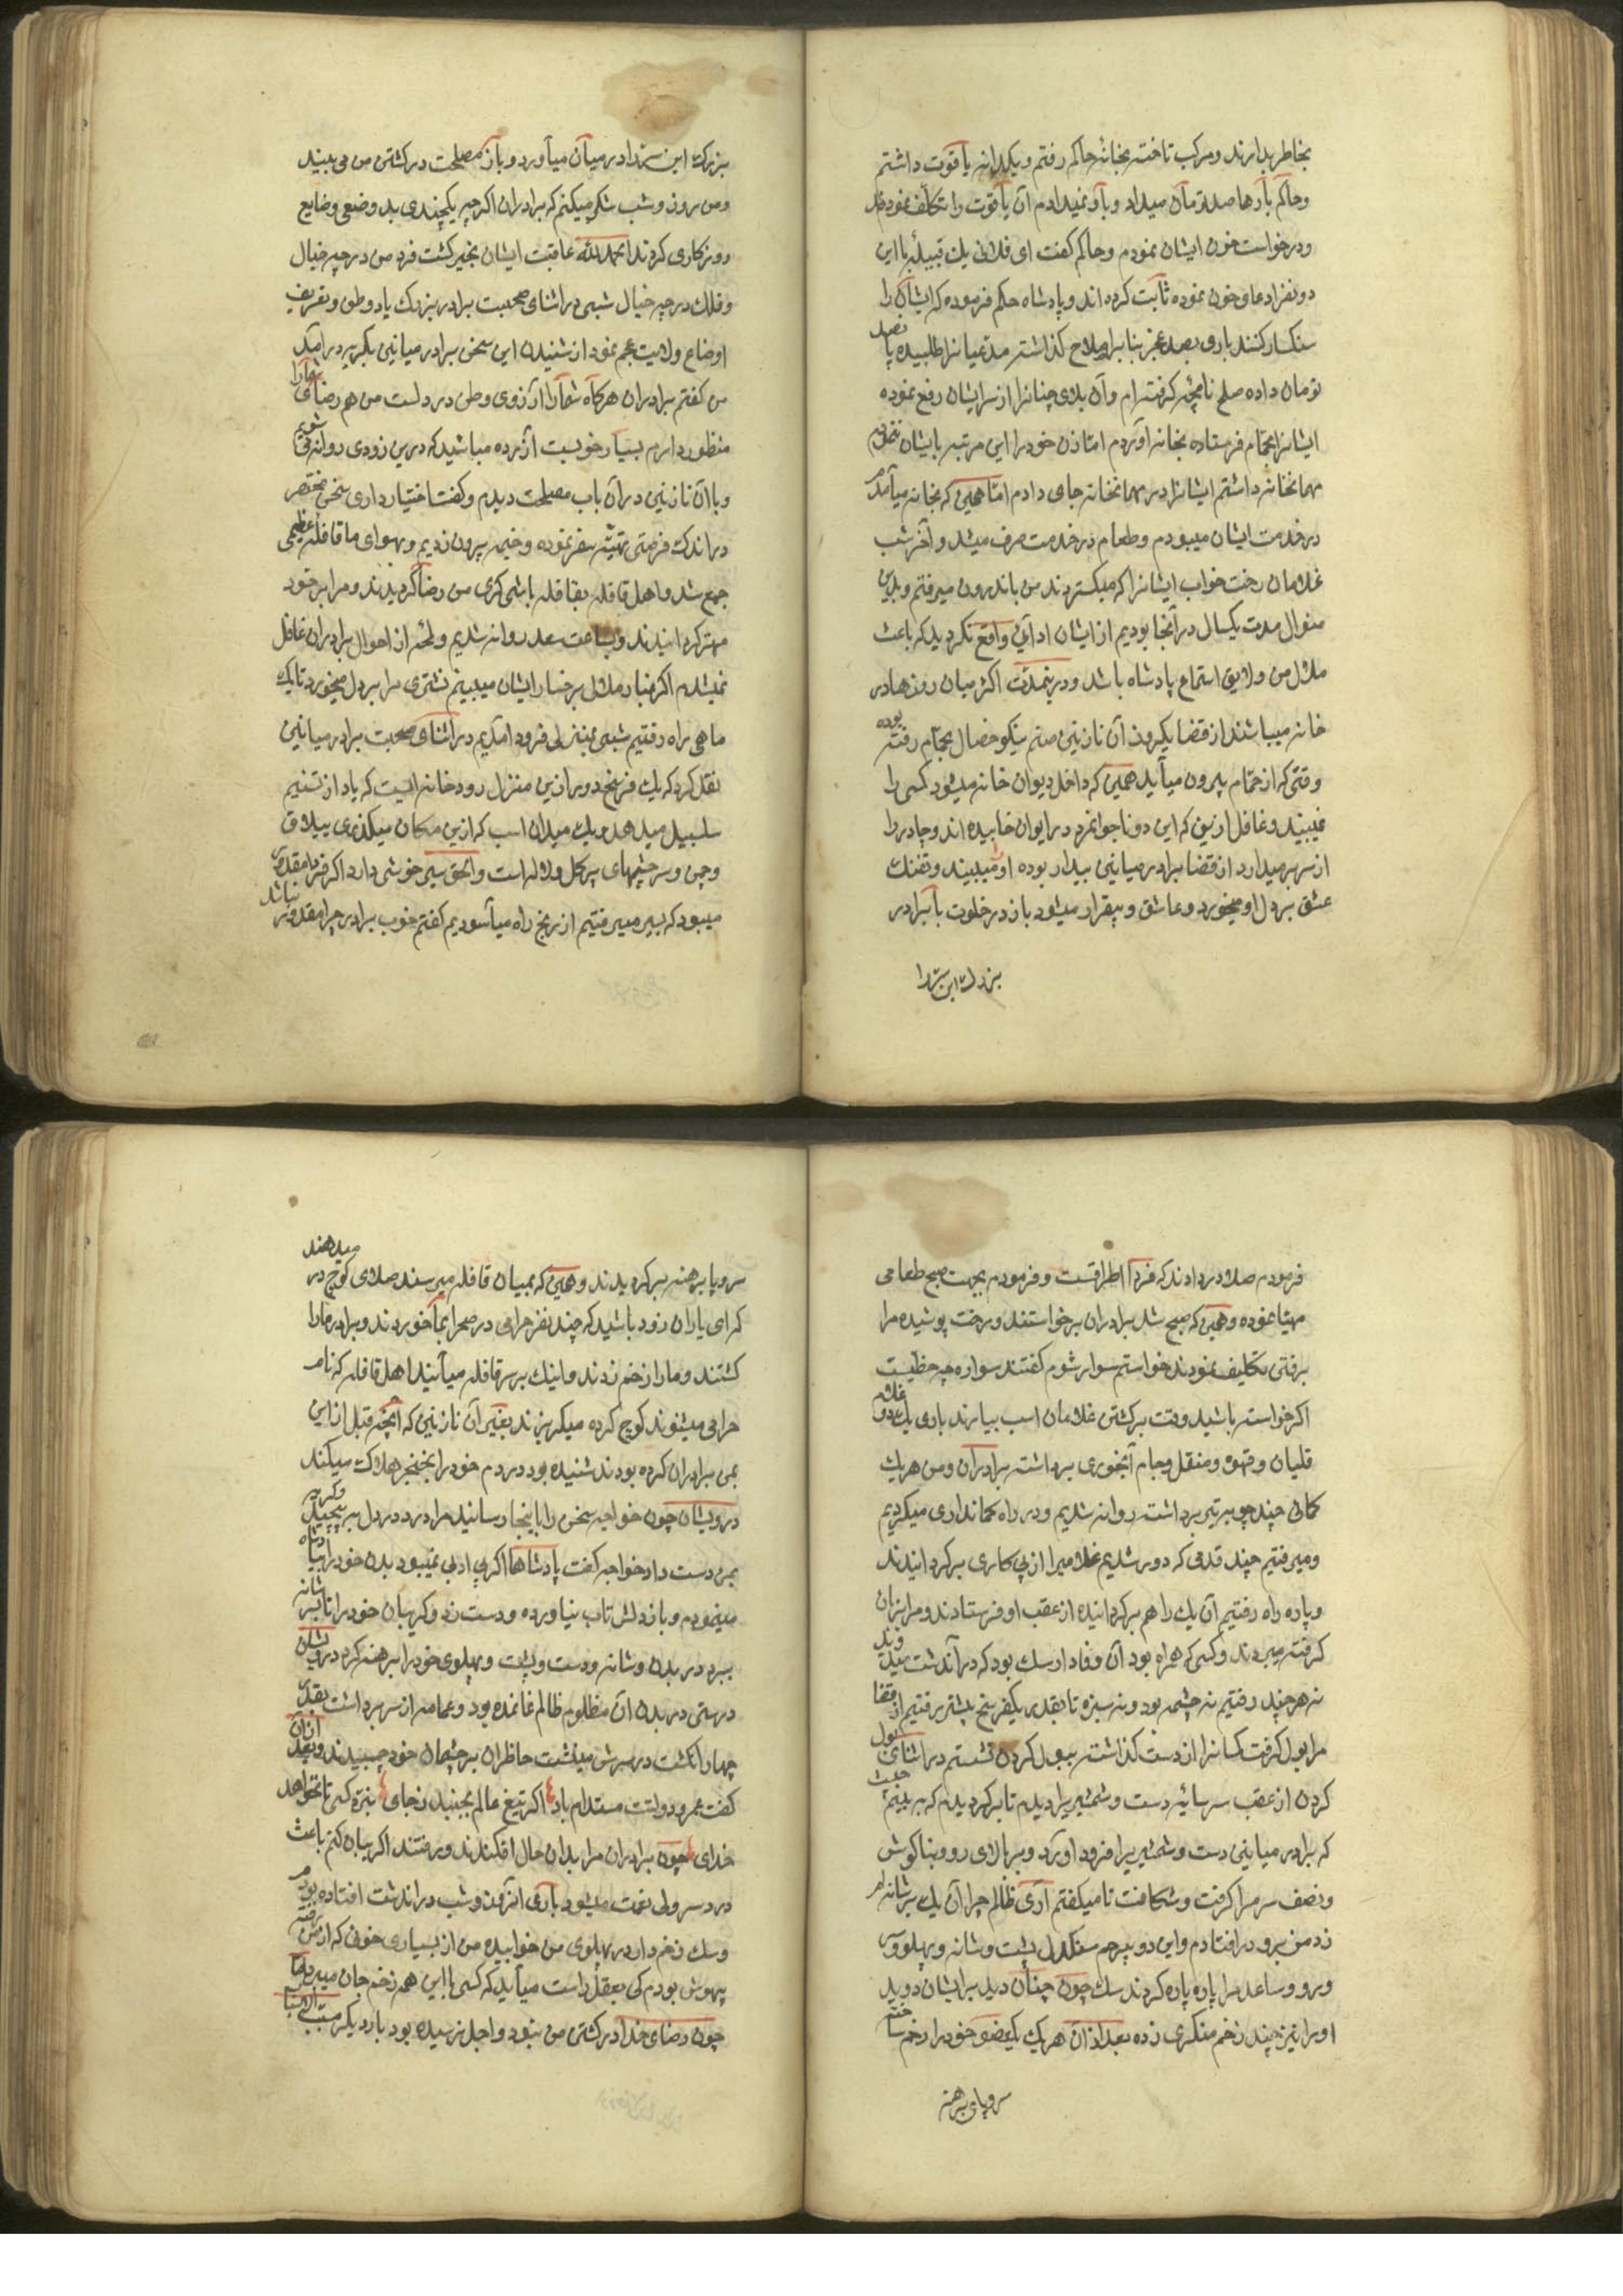 بخاطر بدارند و مرکب تاخته بخانه حاکم رفتم و یکدانه یاقوت داشتم
و حاکم بارها صد تومان میداد و باو نمیدادم آن یاقوت را تکلف نموده
و درخواست خون ایشان نمودم و حاکم گفت ای فلانی یك قبیله با این
دو نفر ادعای خون نموده ثابت کرده اند و پادشاه حکم فرموده که ایشان را
سنکسار کنند باری بصد عجز بنا بر اصلاح گذاشته مدعیانرا طلبیده پانصد
تومان داده صلح نامچه گرفته ام و آن بلای چنانرا از سر ایشان رفع نموده
ایشانرا بحمام فرستاده بخانه آوردم اما زن خود را این مرتبه بایشان ننمودم
مهمانخانه داشتم ایشانرا در مهمانخانه جای دادم اما همین که بخانه میآمدم
در خدمت ایشان میبودم و طعام در خدمت صرف میشد و آخر شب
غلامان رخت خواب ایشانرا که میکستردند من باندرون میرفتم و بدین
منوال مدت یکسال در آنجا بودیم از ایشان ادائی واقع نکردید که باعث
ملال من و لایق استماع پادشاه باشد و درینمدت اکثر میان روزها در
خانه میباشند از قضا یکروز آن نازنین صنم نیکو خصال بحمام رفته بوده
وقتی که از حمام بیرون میآید همین که داخل دیوان خانه میشود کسی را
نمیبیند و غافل ازینکه این دو ناجوانمرد در ایوان خابیده اند و چادر را
از سر برمیدارد از قضا برادر میانین بیدار بوده او را میبیند و تفنك
عشق بر دل او میخورد و عاشق و بیقرار میشود باز در خلوت با برادر
بزرك این سر را
بزرك این سر را در میان میآورد و باز مصلحت در کشتن من می بیند
و من روز و شب شکر میکنم که برادران اکرچه یکچندی بد وضعی و ضایع
روزکاری کردند الحمد لله عاقبت ایشان بخیر کشت فرد من در چه خیال
و فلك در چه خیال شبی در اثنای صحبت برادر بزرك یاد وطن و تعریف
اوضاع ولایت عجم نمود از شنیدن این سخن برادر میانین بکریه در آمد
من کفتم برادران هرکاه شما را آرزوی وطن در دلست من هم رضای شما را
منظور دارم بسیار خوبست آزرده مباشید که درین زودی روانه می شویم
و با آن نازنین در آن باب مصلحت دیدم و کفت اختیار داری سخن مختصر
در اندك فرصتی تهیه سفر نموده و خیمه بیرون زدیم و بهوای ما قافله عظیمی
جمع شد و اهل قافله بقافله باشی کری من رضا کردیدند و مرا بر خود
مهتر کردانیدند و بساعت سعد روانه شدیم و لمحه از احوال برادران غافل
نمیشدم اکر غبار ملال بر خسار ایشان میدیدم نشتری مرا بر دل میخورد تا یك
ماهی راه رفتیم شبی بمنزلی فرود آمدیم در اثنای صحبت برادر میانین
نقل کرد که یك فرسخ دور ازین منزل رودخانه ایست که یاد از تسنیم
سلسبیل میدهد و یك میدان اسب که ازین مکان میکذری ییلاق
و چمن و سرچشمهای پر کل و لاله است و الحق سیر خوشی دارد اکر فردا مقدور
میبود که بسیر میرفتیم از رنج راه میآسودیم کفتم خوب برادر چرا مقدور نباشد
فرمودم صلا در دادند که فردا اطراقست و فرمودم بجهت صبح طعامی
مهیا نموده و همین که صبح شد برادران برخواستند و رخت پوشیده مرا
برفتن تکلیف نمودند خواستم سوار شوم کفتند سواره چه حظیست
اکر خواسته باشید وقت برکشتن غلامان اسب بیارند باری یك دو غلام
قلیان و قهوه و منقل و جام آبخوری برداشته برادران و من هریك
کمانی چند چوبه تیر برداشته روانه شدیم و در راه کمانداری میکردیم
و میرفتیم چند قدمی که دور شدیم غلام مرا از پی کاری برکردانیدند
و پاره راه رفتیم آن یك را هم برکردانیده از عقب او فرستادند و مرا بزبان
کرفته میبردند و کسی که همراه بود آن وفادار سك بود که در آندشت میدوید
نه هرچند رفتیم نه چشمه بود و نه سبزه تا بقدر یکفرسخ بیشتر رفتیم از قضا
مرا بول کرفت کمانرا از دست کذاشته ببول کردن نشستم در اثنای بول
کردن از عقب سر سایه دست و شمشیر را دیدم تا برکردیدم که ببینم چیست
که برادر میانین دست و شمشیر را فرود آورد و بر بالای رو و بناکوش
و نصف سر مرا کرفت و شکافت تا میکفتم آی ظالم چرا آن یك بر شانه ام
زد من برو در افتادم و این دو بیرحم سنکدل پشت و شانه و پهلو و سر
و رو و ساعد مرا پاره پاره کردند سك چون چنان دید بر ایشان دوید
او را نیز چند زخم منکری زده بعد از آن هریك یکعضو خود را زخم ساختم
سروپای برهنه
سروپا برهنه برکردیدند و همین که بمیان قافله میرسند صلای کوچ در میدهند
که ای یاران زود باشید که چند نفر حرامی در صحرا بما خوردند و برادر ما را
کشتند و ما را زخم زدند و اینك بر سر قافله میآیند اهل قافله که نام
حرامی میشنوند کوچ کرده میکریزند بغیر آن نازنین که آنچه قبل از این
بمن برادران کرده بودند شنیده بود در دم خود را بخنجر هلاك میکند
درویشان چون خواجه سخن را باینجا رسانید مرا درد در دل بپیچید و کریه
بمن دست داد خواجه کفت پادشاها اکر بی ادبی نمیبود بدن خود را بپادشاه
مینمودم و باز دلش تاب نیاورده و دست زد و کریبان خود را تا بشانه
ببرد در بدن و شانه و دست و پشت و پهلوی خود را برهنه کرد درویشان
درستی در بدن آن مظلوم ظالم نمانده بود و عمامه از سر برداشت بقدر
چهار انکشت در سرش مینشست حاظران بر چشمان خود چسبیدند و بعد از آن
کفت عمر و دولتت مستدام باد اکر تیغ عالم بجنبد ز جای نبرد رکی تا نخواهد
خدای چون برادران مرا بدان حال افکندند و رفتند اکر بیان کنم باعث
درد سر ولی نعمت میشود باری آنروز و شب در اندشت افتاده بودم
و سك زخم دار در پهلوی من خوابیده من از بسیاری خونی که از من رفته
بیهوش بودم کی بعقل راست میآید که کسی با این همه زخم جان میبرد اما
چون رضای خدا در کشتن من نبود و اجل نرسیده بود بار دیکر مسبب الاسباب